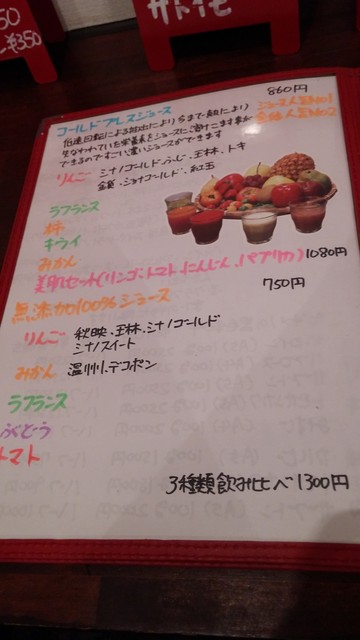 50
¥350
サトイモ
コールドプレスジュース 860円
低速回転による抽出により今まで熱により ジュース人気No1
失なわれていた栄養素をジュースに溶けこます事が
できるのですごい濃いジュースができます
りんご シナノゴールド、ふじ、王林、トキ
金星、シナノゴールド、紅玉
ラフランス
柿
キウイ
みかん
美肌セット(リンゴ、トマト、にんじん、パプリカ) 1080円
無添加100%ジュース 750円
りんご 秋映、王林、シナノゴールド
シナノスイート
みかん 温州、デコポン
ラフランス
ぶどう
トマト
3種類飲み比べ 1300円